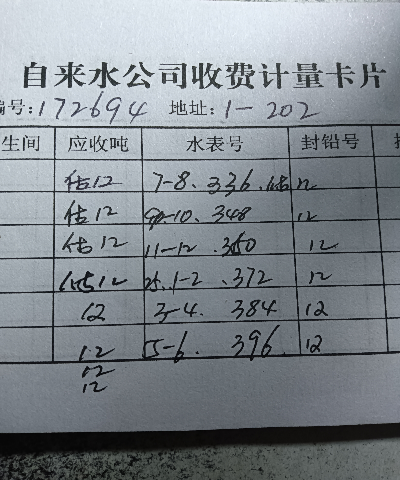 自来水公司收费计量卡片
编号:172694 地址:1-202
生间 应收吨 水表号 封铅号
估12 7-8. 336. 估12
估12 9-10. 348 12
估12 11-12. 360 12
估12 25.1-2. 372 12
12 3-4. 384 12
12 5-6. 396. 12
12
12